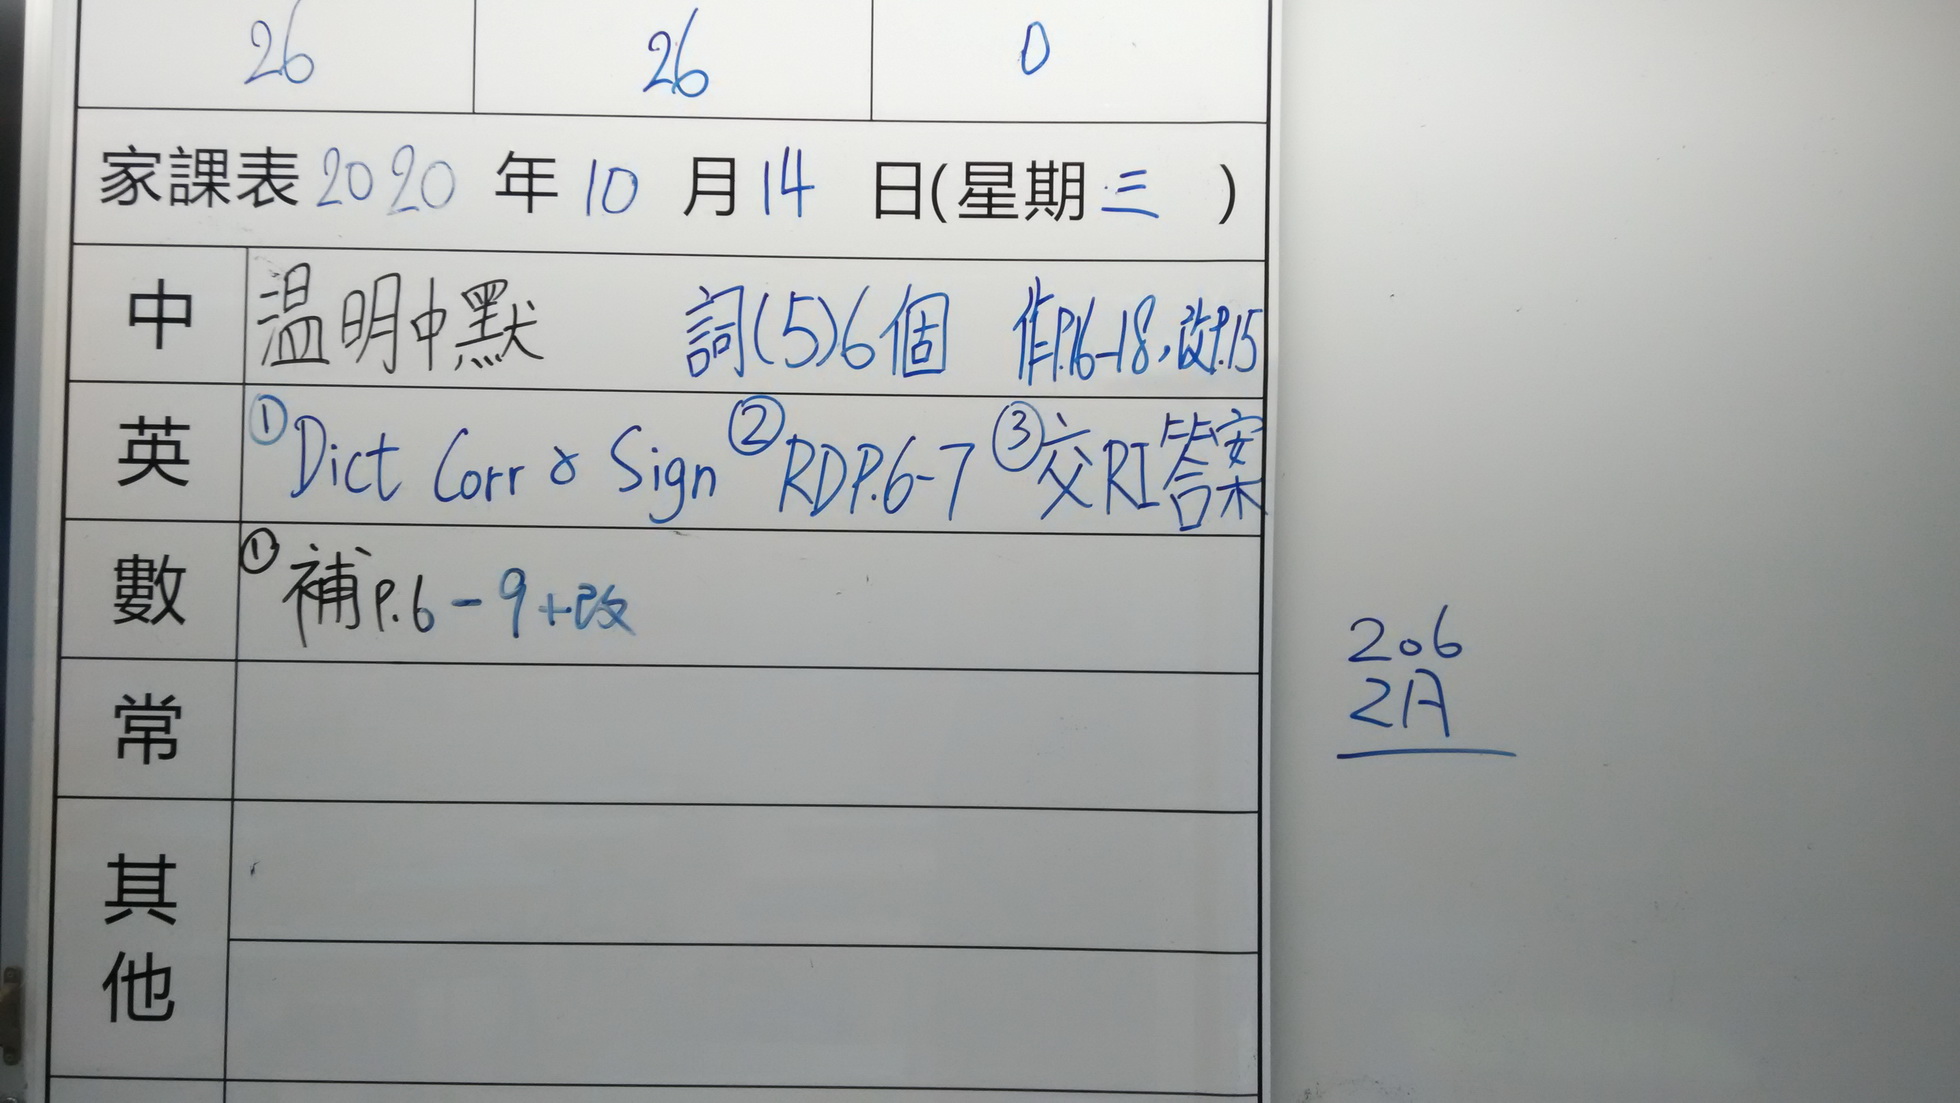 26 26 0
家課表 2020 年 10 月 14 日(星期 三 )
中 溫明中默 詞(5)6個 作P.16-18,改P.15
英 ①Dict Corr & Sign ②RDP.6-7 ③交RI答案
數 ①補P.6-9+改
常
其
他
206
2A